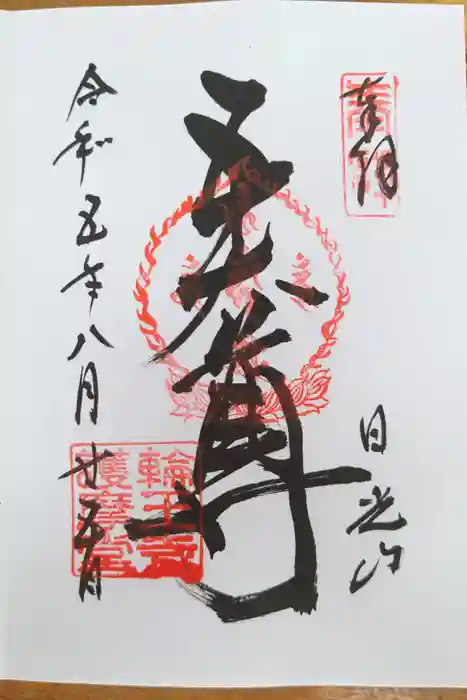 奉拝
日光山
五大尊
輪王寺
護摩堂
令和五年八月廿五日